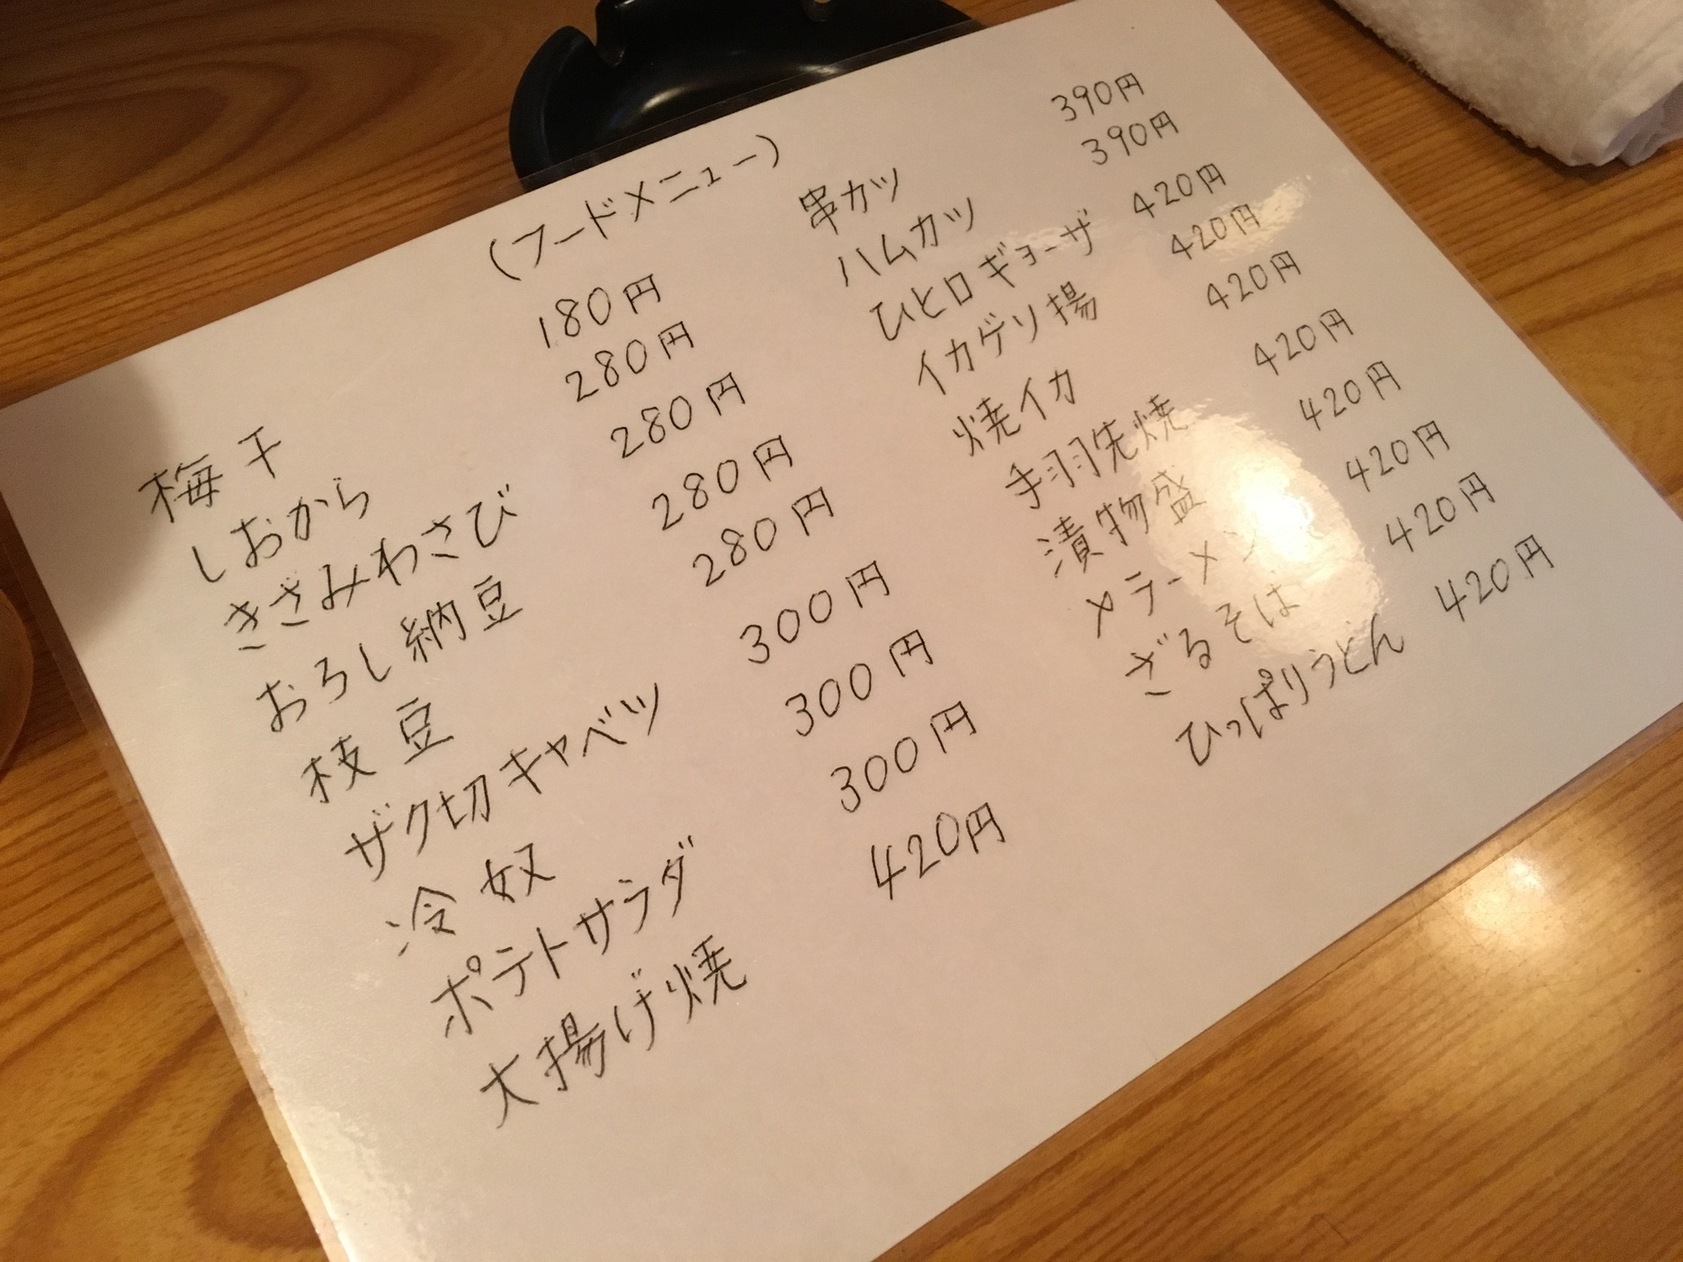 (フードメニュー)
梅干 180円
しおから 280円
きざみわさび 280円
おろし納豆 280円
枝豆 280円
ザク切キャベツ 300円
冷奴 300円
ポテトサラダ 300円
大揚げ焼 420円
串カツ 390円
ハムカツ 390円
ひと口ギョーザ 420円
イカゲソ揚 420円
焼イカ 420円
手羽先焼 420円
漬物盛 420円
メラーメン 420円
ざるそば 420円
ひっぱりうどん 420円